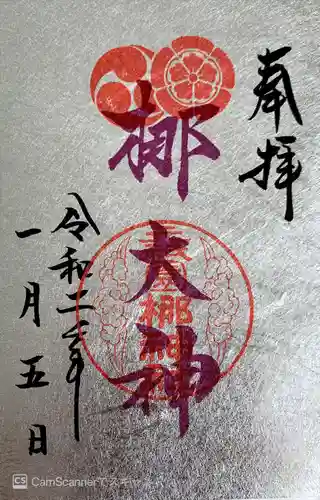 奉拝
梛
大神
令和二年
一月五日
CS CamScannerでスキャン